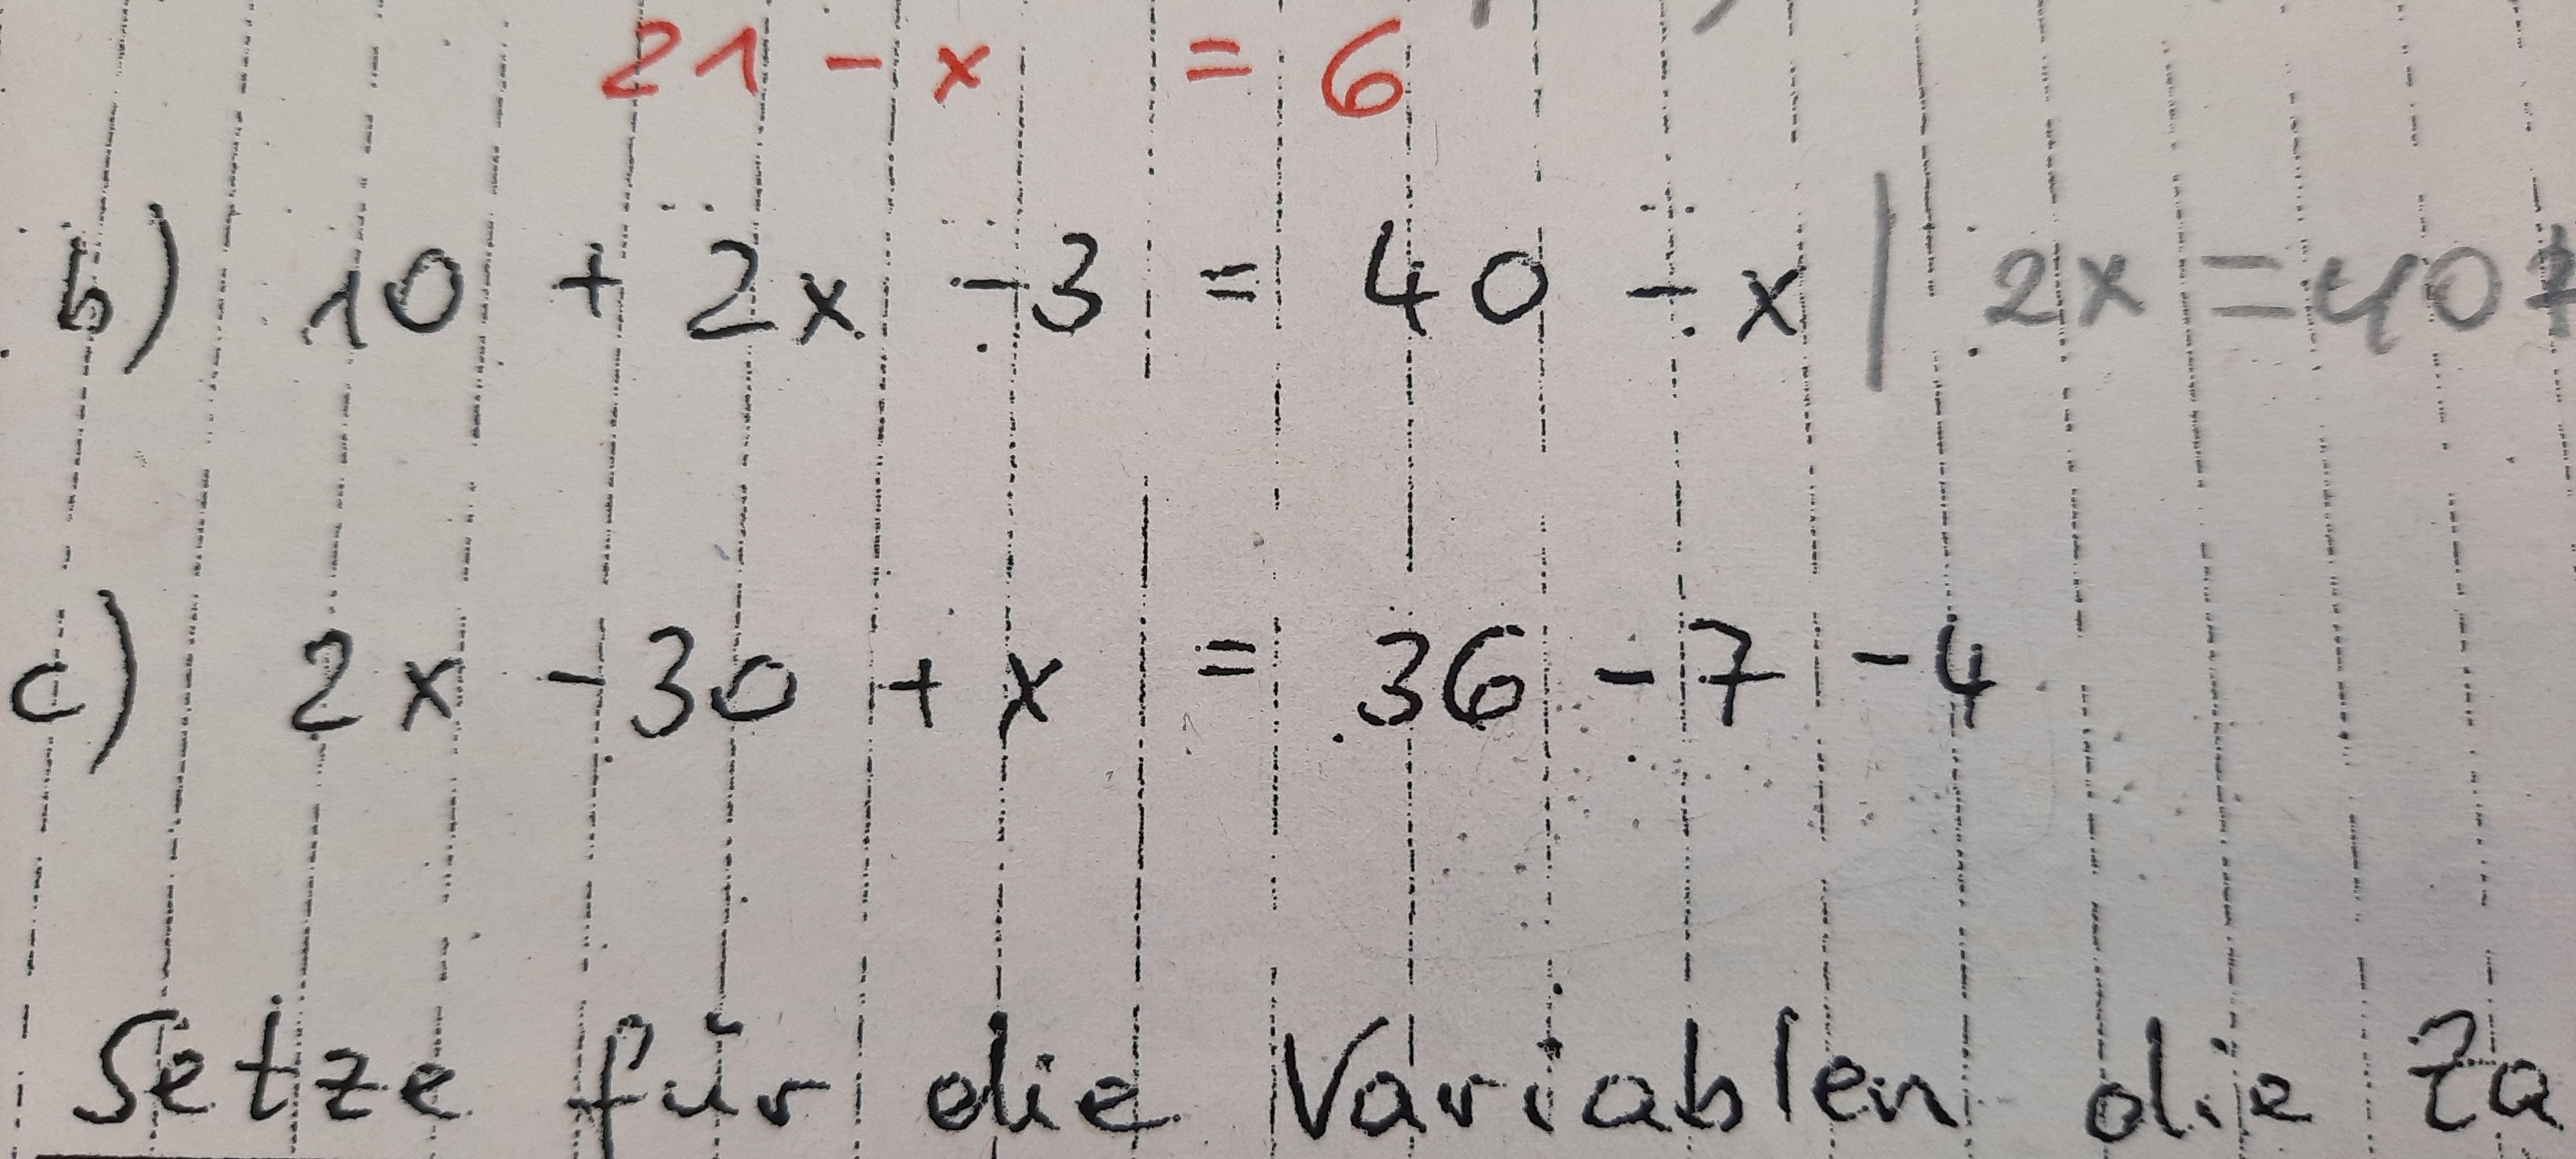 21 - x = 6
b) 10 + 2x - 3 = 40 - x | 2x = 40
c) 2x - 30 + x = 36 - 7 - 4
Setze für die Variablen die Za